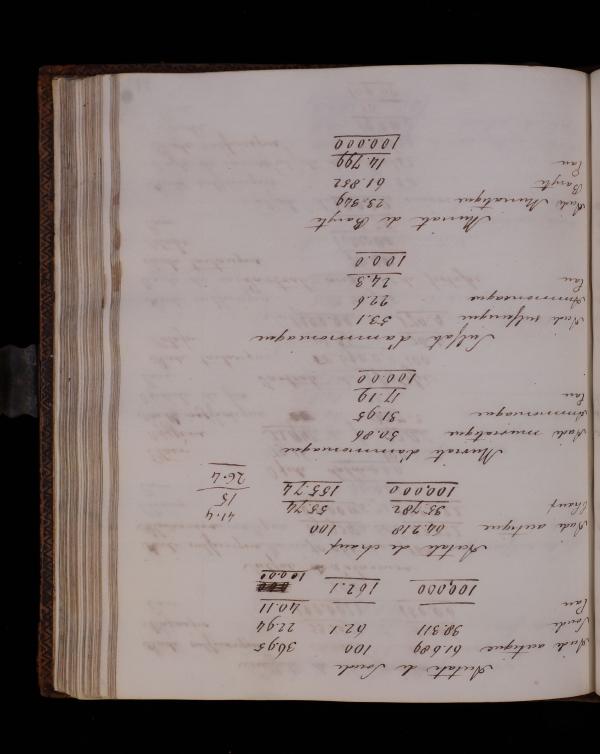 Acetate de Soude
Acide acetique 61.689 100 36.95
Soude 38.311 62.1 22.94
Eau 40.11
100,000 162.1 100.00
Acetate de chaux
Acide acetique 64.218 100 41.4
Chaux 35.782 55.74 15
100,000 155.74 26.4
Muriate d'ammoniaque
Acide muriatique 50.86
Ammoniaque 31.95
Eau 17.19
100.00
Sulfate d'ammoniaque
Acide sulfurique 53.1
Ammoniaque 22.6
Eau 24.3
100.0
Muriate de Baryte
Acide Muriatique 23.349
Baryte 61.852
Eau 14.799
100.000